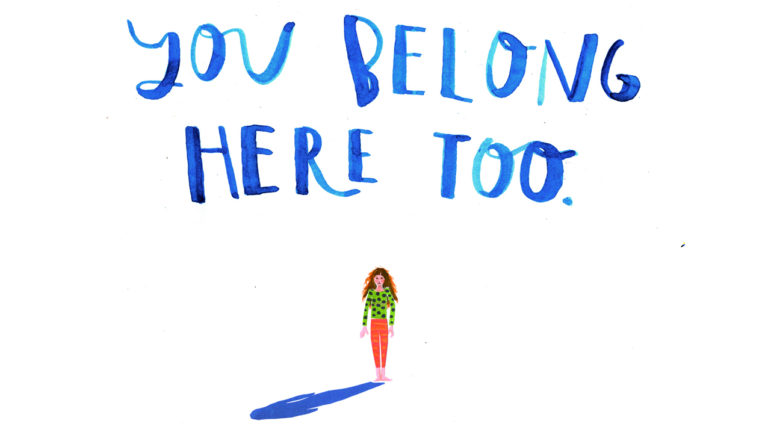 YOU BELONG
HERE TOO.